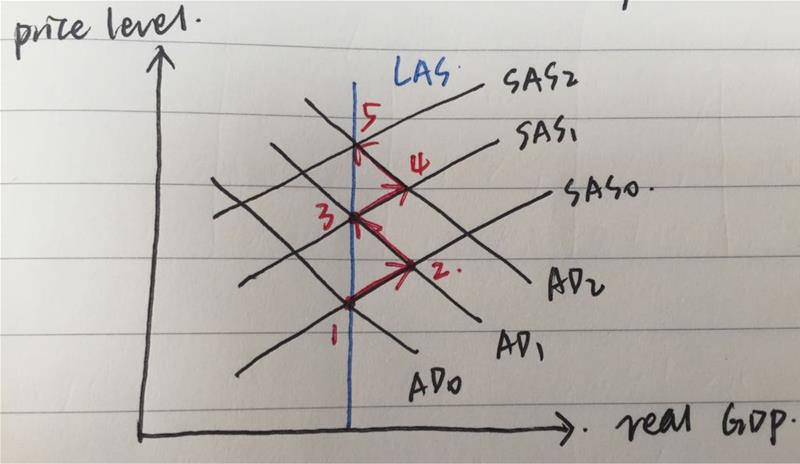 price level.
LAS.
SAS2
5
SAS1
4
SAS0.
3
2.
AD2
1
AD1
AD0
real GDP.